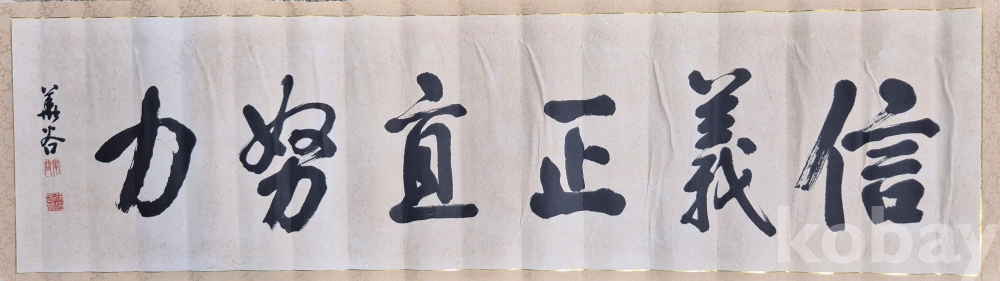 信義正直努力
華谷
kobay